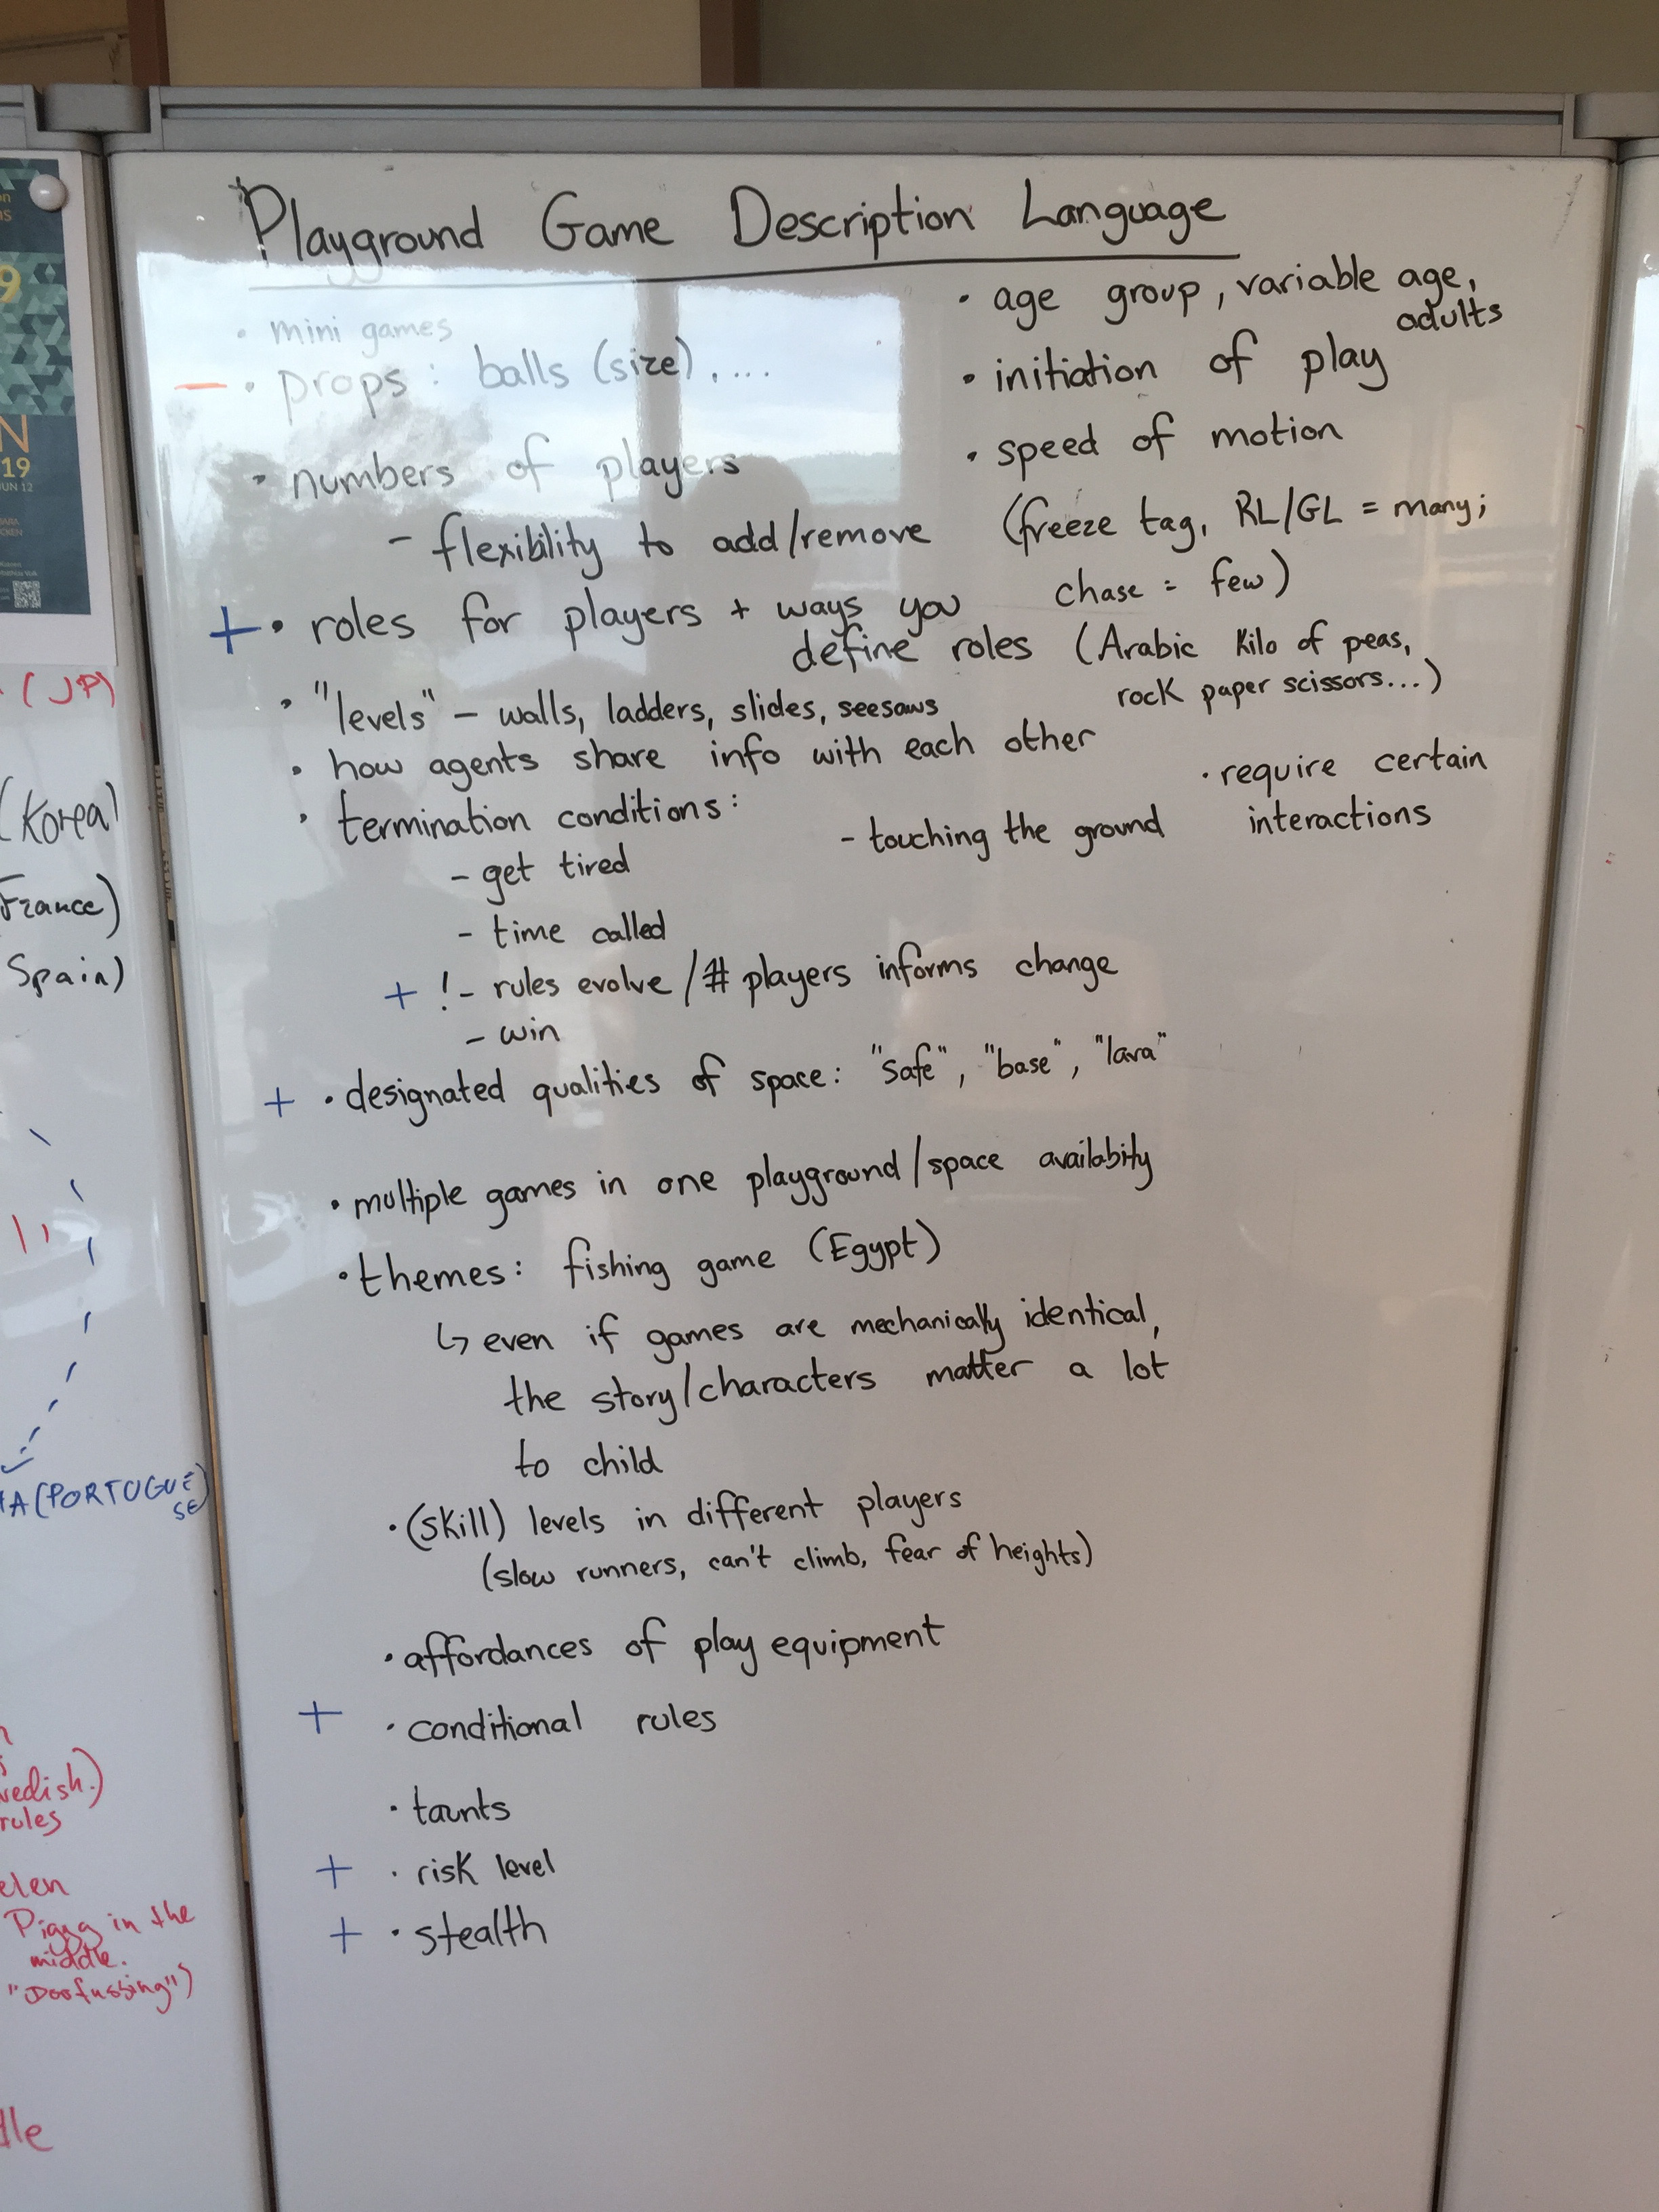 Playground Game Description Language
• mini games
— • props: balls (size), ....
• numbers of players
- flexibility to add/remove
+ • roles for players + ways you
define roles (Arabic Kilo of peas,
rock paper scissors...)
• "levels" - walls, ladders, slides, seesaws
• how agents share info with each other
• termination conditions:
- get tired
- time called
+ !- rules evolve/# players informs change
- win
- touching the ground
+ • designated qualities of space: "safe", "base", "lava"
• multiple games in one playground/space availabity
• themes: fishing game (Egypt)
↳ even if games are mechanically identical,
the story/characters matter a lot
to child
• (skill) levels in different players
(slow runners, can't climb, fear of heights)
• affordances of play equipment
+ • conditional rules
• taunts
+ • risk level
+ • stealth
• age group, variable age,
adults
• initiation of play
• speed of motion
(freeze tag, RL/GL = many;
chase = few)
• require certain
interactions
9
N
19
JUN 12
(JP)
(Korea)
France)
Spain)
A (PORTOGUE
SE)
rules
in the
middle.